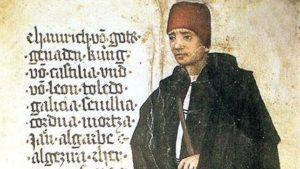 hainrich võ gots·
genaden küng·
võ castilia und·
võ leon toledo·
galicia sevillia
cordua mortza
Jan algarbe·